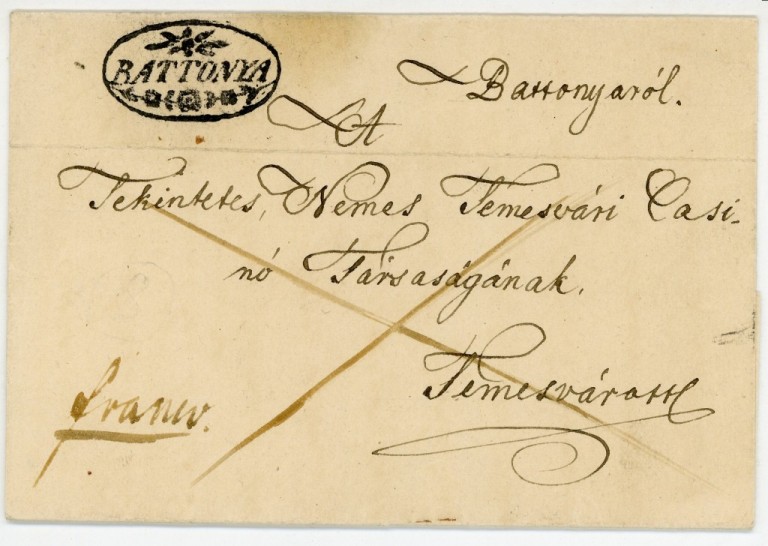 BATTONYA
Battonyaról.
A
Tekintetes, Nemes Temesvári Casi-
nó Társaságának.
Temesvárott
franco.